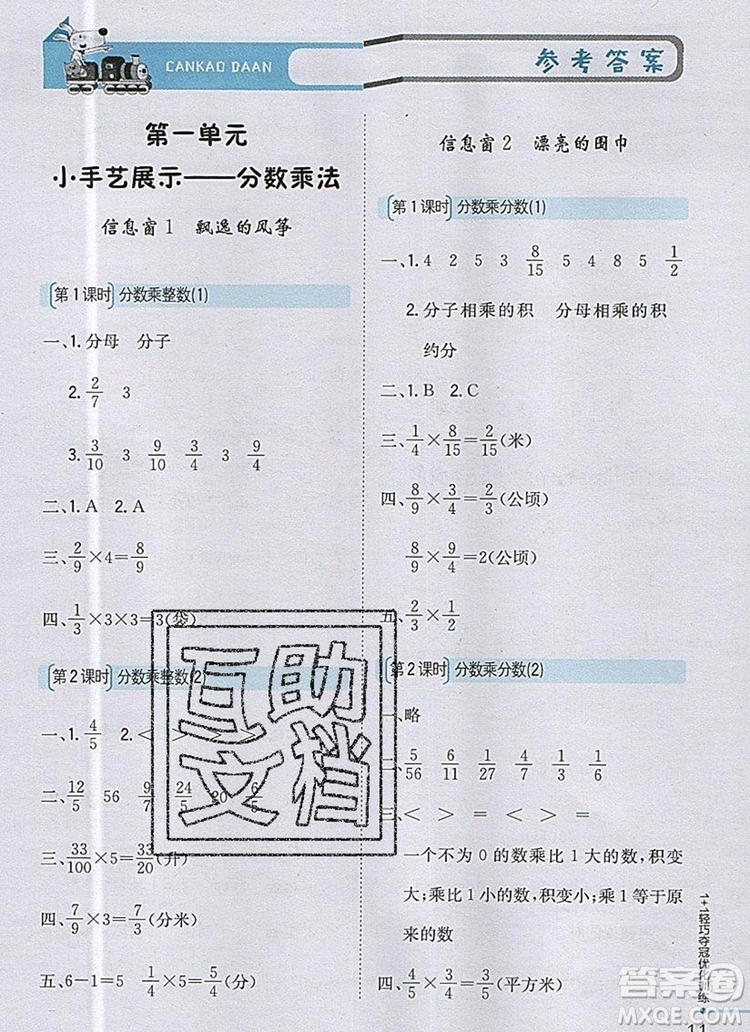 CANKAO DAAN
参考答案
第一单元
小手艺展示——分数乘法
信息窗1 飘逸的风筝
第1课时 分数乘整数(1)
一、1. 分母 分子
2. 2/7 3
3. 3/10 3 9/10 3/4 3 9/4
二、1. A 2. A
三、2/9×4=8/9
四、1/3×3×3=3(袋)
第2课时 分数乘整数(2)
一、1. 4/5 2. <
二、12/5 56 9/7 24/5 20 6/5
三、33/100×5=33/20(升)
四、7/9×3=7/3(分米)
五、6-1=5 1/4×5=5/4(分)
信息窗2 漂亮的围巾
第1课时 分数乘分数(1)
一、1. 4 2 5 3 8/15 5 4 5 4 1/2
2. 分子相乘的积 分母相乘的积
约分
二、1. B 2. C
三、1/4×8/15=2/15(米)
四、8/9×3/4=2/3(公顷)
8/9×9/4=2(公顷)
五、2/3×1/2
第2课时 分数乘分数(2)
一、略
二、5/56 6/11 1/27 4/7 6/7 1/3
三、< > = < > =
一个不为0的数乘比1大的数，积变
大；乘比1小的数，积变小；乘1得原
来的数
四、4/5×4/5=(平方米)
1+1轻巧夺冠优化训练
11
互助
文档
答案圈
MXQE.COM